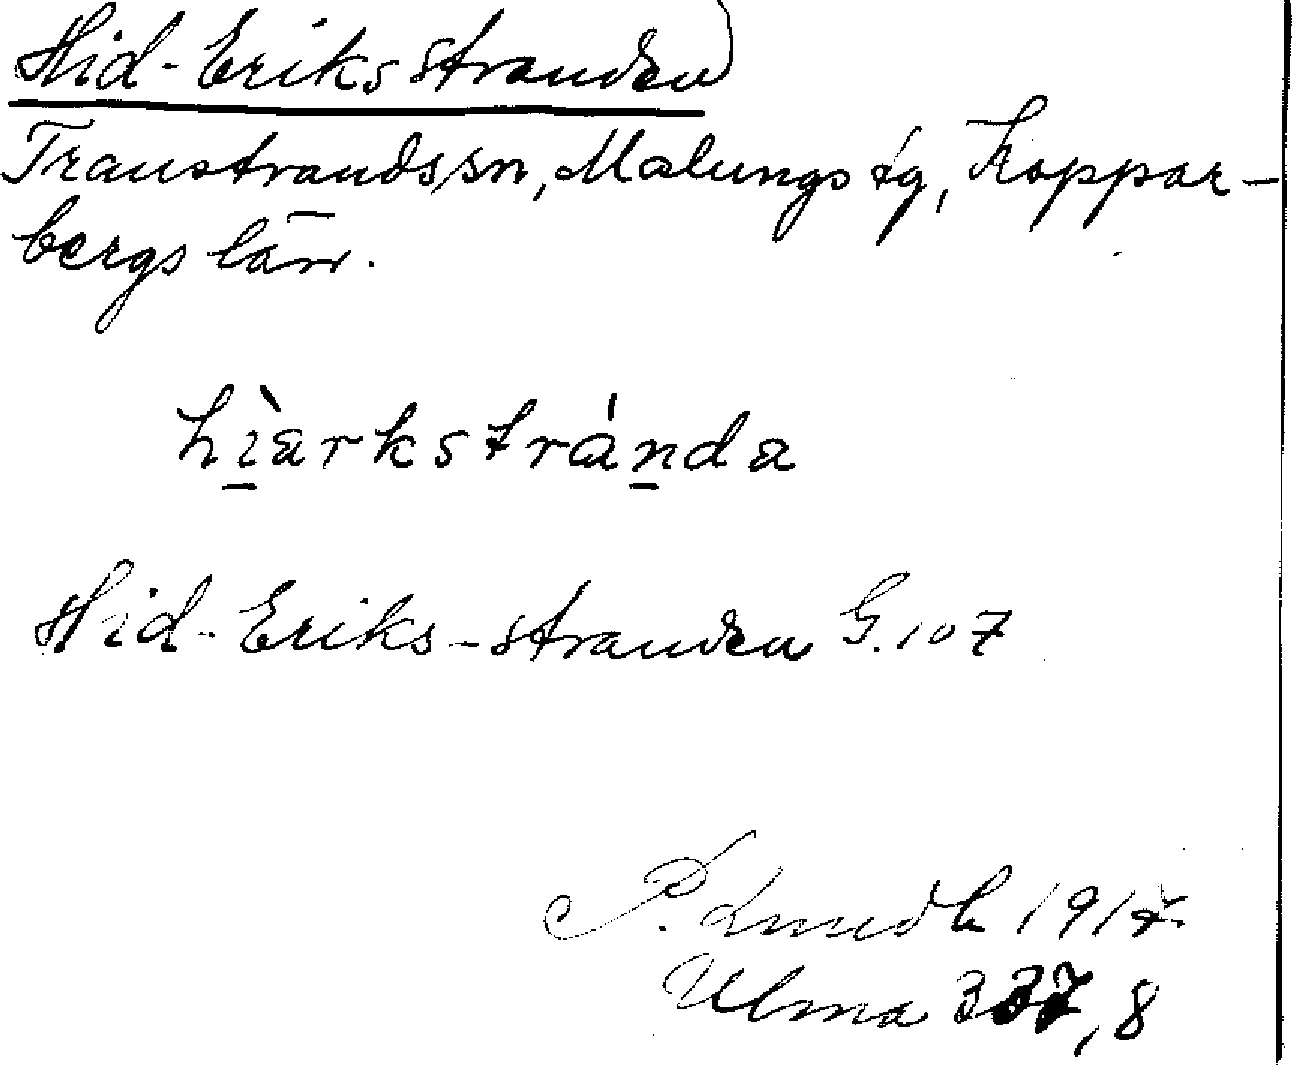 Hid-Eriksstranden
Transtrands sn, Malungs tg, Koppar-
bergs län.
hìarkstránda
Hid-Eriks-stranden G. 107
P. 1917
Ulma 337, 8